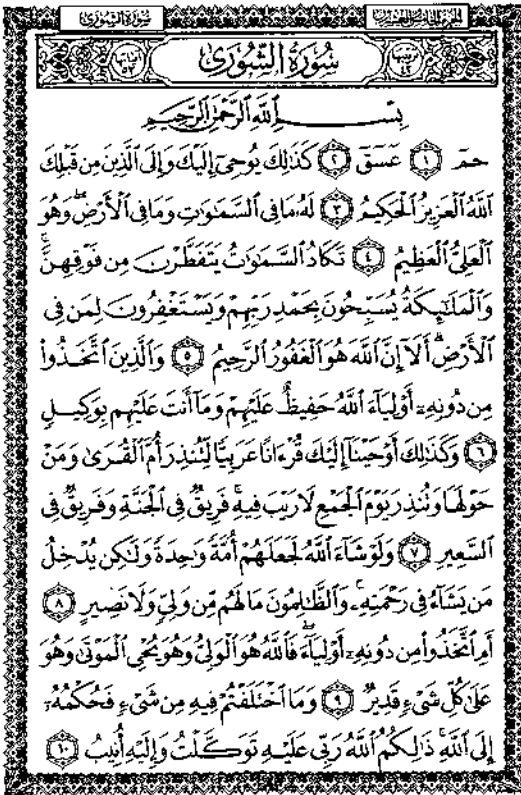 الجزء الخامس والعشرون سُورَةُ الشُّورَىٰ
ترتيبها ٤٢ سُورَةُ الشُّورَىٰ آياتها ٥٣
بِسْمِ ٱللَّهِ ٱلرَّحْمَٰنِ ٱلرَّحِيمِ
حمٓ ١ عٓسٓقٓ ٢ كَذَٰلِكَ يُوحِىٓ إِلَيْكَ وَإِلَى ٱلَّذِينَ مِن قَبْلِكَ
ٱللَّهُ ٱلْعَزِيزُ ٱلْحَكِيمُ ٣ لَهُۥ مَا فِى ٱلسَّمَٰوَٰتِ وَمَا فِى ٱلْأَرْضِ ۖ وَهُوَ
ٱلْعَلِىُّ ٱلْعَظِيمُ ٤ تَكَادُ ٱلسَّمَٰوَٰتُ يَتَفَطَّرْنَ مِن فَوْقِهِنَّ ۚ
وَٱلْمَلَٰٓئِكَةُ يُسَبِّحُونَ بِحَمْدِ رَبِّهِمْ وَيَسْتَغْفِرُونَ لِمَن فِى
ٱلْأَرْضِ ۗ أَلَآ إِنَّ ٱللَّهَ هُوَ ٱلْغَفُورُ ٱلرَّحِيمُ ٥ وَٱلَّذِينَ ٱتَّخَذُوا۟
مِن دُونِهِۦٓ أَوْلِيَآءَ ٱللَّهُ حَفِيظٌ عَلَيْهِمْ وَمَآ أَنتَ عَلَيْهِم بِوَكِيلٍ
٦ وَكَذَٰلِكَ أَوْحَيْنَآ إِلَيْكَ قُرْءَانًا عَرَبِيًّا لِّتُنذِرَ أُمَّ ٱلْقُرَىٰ وَمَنْ
حَوْلَهَا وَتُنذِرَ يَوْمَ ٱلْجَمْعِ لَا رَيْبَ فِيهِ ۚ فَرِيقٌ فِى ٱلْجَنَّةِ وَفَرِيقٌ فِى
ٱلسَّعِيرِ ٧ وَلَوْ شَآءَ ٱللَّهُ لَجَعَلَهُمْ أُمَّةً وَٰحِدَةً وَلَٰكِن يُدْخِلُ
مَن يَشَآءُ فِى رَحْمَتِهِۦ ۚ وَٱلظَّٰلِمُونَ مَا لَهُم مِّن وَلِىٍّ وَلَا نَصِيرٍ ٨
أَمِ ٱتَّخَذُوا۟ مِن دُونِهِۦٓ أَوْلِيَآءَ ۖ فَٱللَّهُ هُوَ ٱلْوَلِىُّ وَهُوَ يُحْىِ ٱلْمَوْتَىٰ وَهُوَ
عَلَىٰ كُلِّ شَىْءٍ قَدِيرٌ ٩ وَمَا ٱخْتَلَفْتُمْ فِيهِ مِن شَىْءٍ فَحُكْمُهُۥٓ
إِلَى ٱللَّهِ ۚ ذَٰلِكُمُ ٱللَّهُ رَبِّى عَلَيْهِ تَوَكَّلْتُ وَإِلَيْهِ أُنِيبُ ١٠